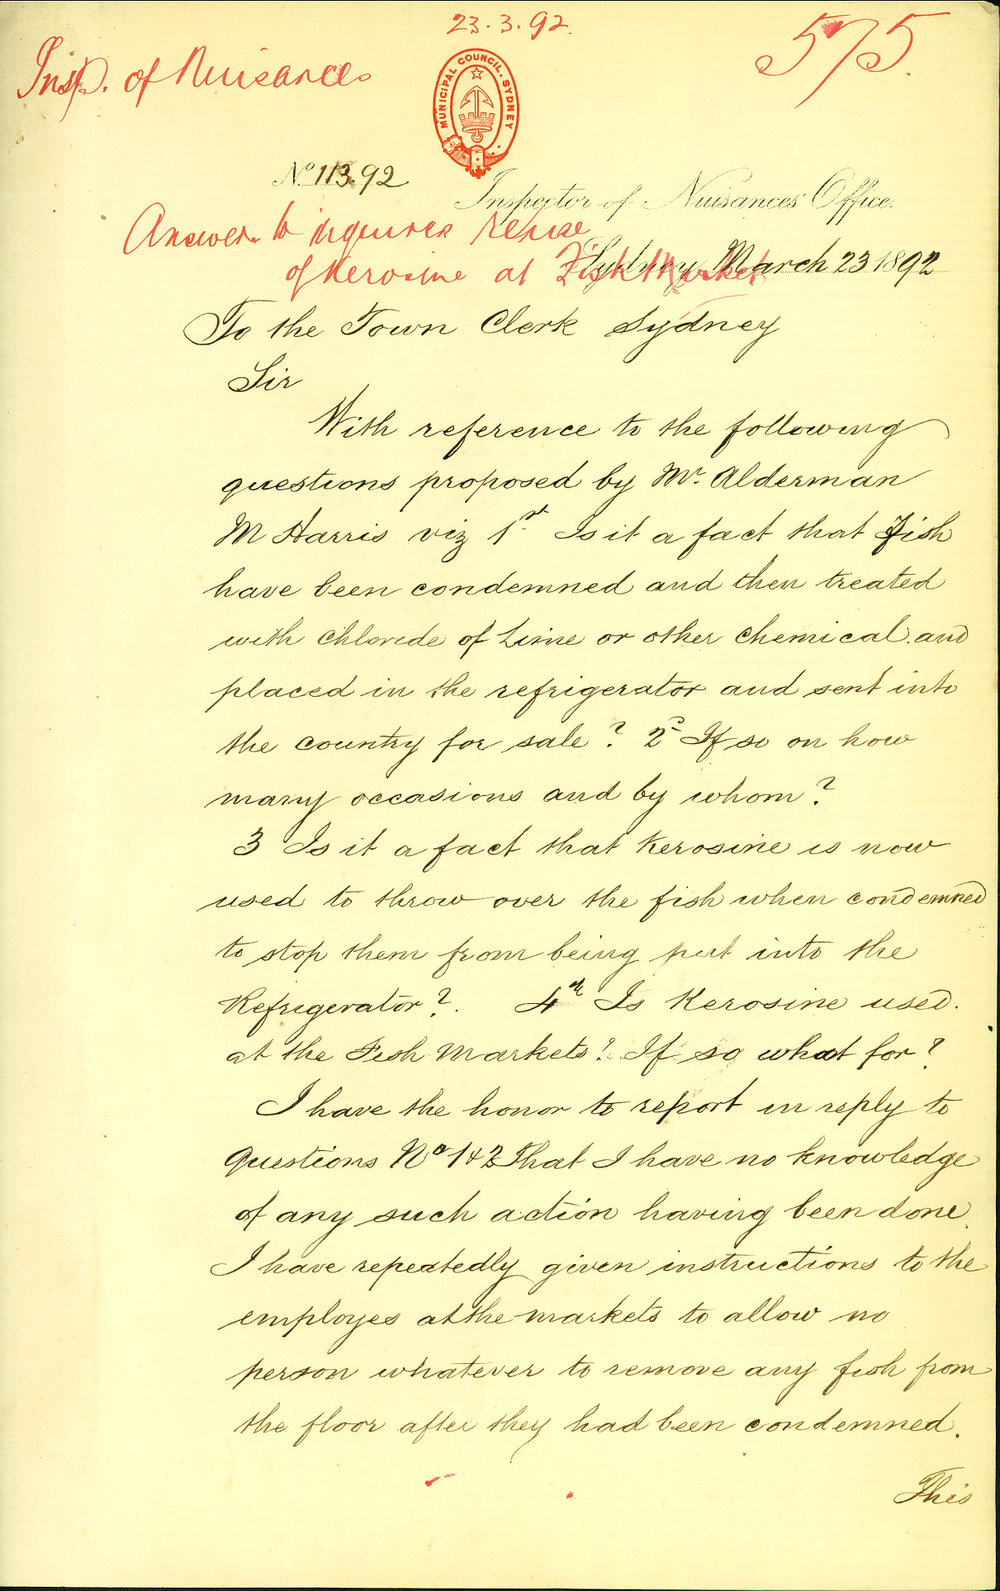 23.3.92.
575.
Insp. of Nuisances
MUNICIPAL COUNCIL. SYDNEY
No 113.92
Inspector of Nuisances Office.
Answer to inquires re use
of Kerosine at Fish Market
Sydney March 23 1892
To the Town Clerk Sydney
Sir
With reference to the following
questions proposed by Mr. Alderman
M Harris viz 1st. Is it a fact that Fish
have been condemned and then treated
with chloride of Lime or other chemical and
placed in the refrigerator and sent into
the country for sale? 2d If so on how
many occasions and by whom?
3 Is it a fact that Kerosine is now
used to throw over the fish when condemned
to stop them from being put into the
Refrigerator?. 4th Is Kerosine used.
at the Fish Markets? If so what for?
I have the honor to report in reply to
Questions No 1 & 2 That I have no knowledge
of any such action having been done.
I have repeatedly given instructions to the
employes at the markets to allow no
person whatever to remove any fish from
the floor after they had been condemned.
This